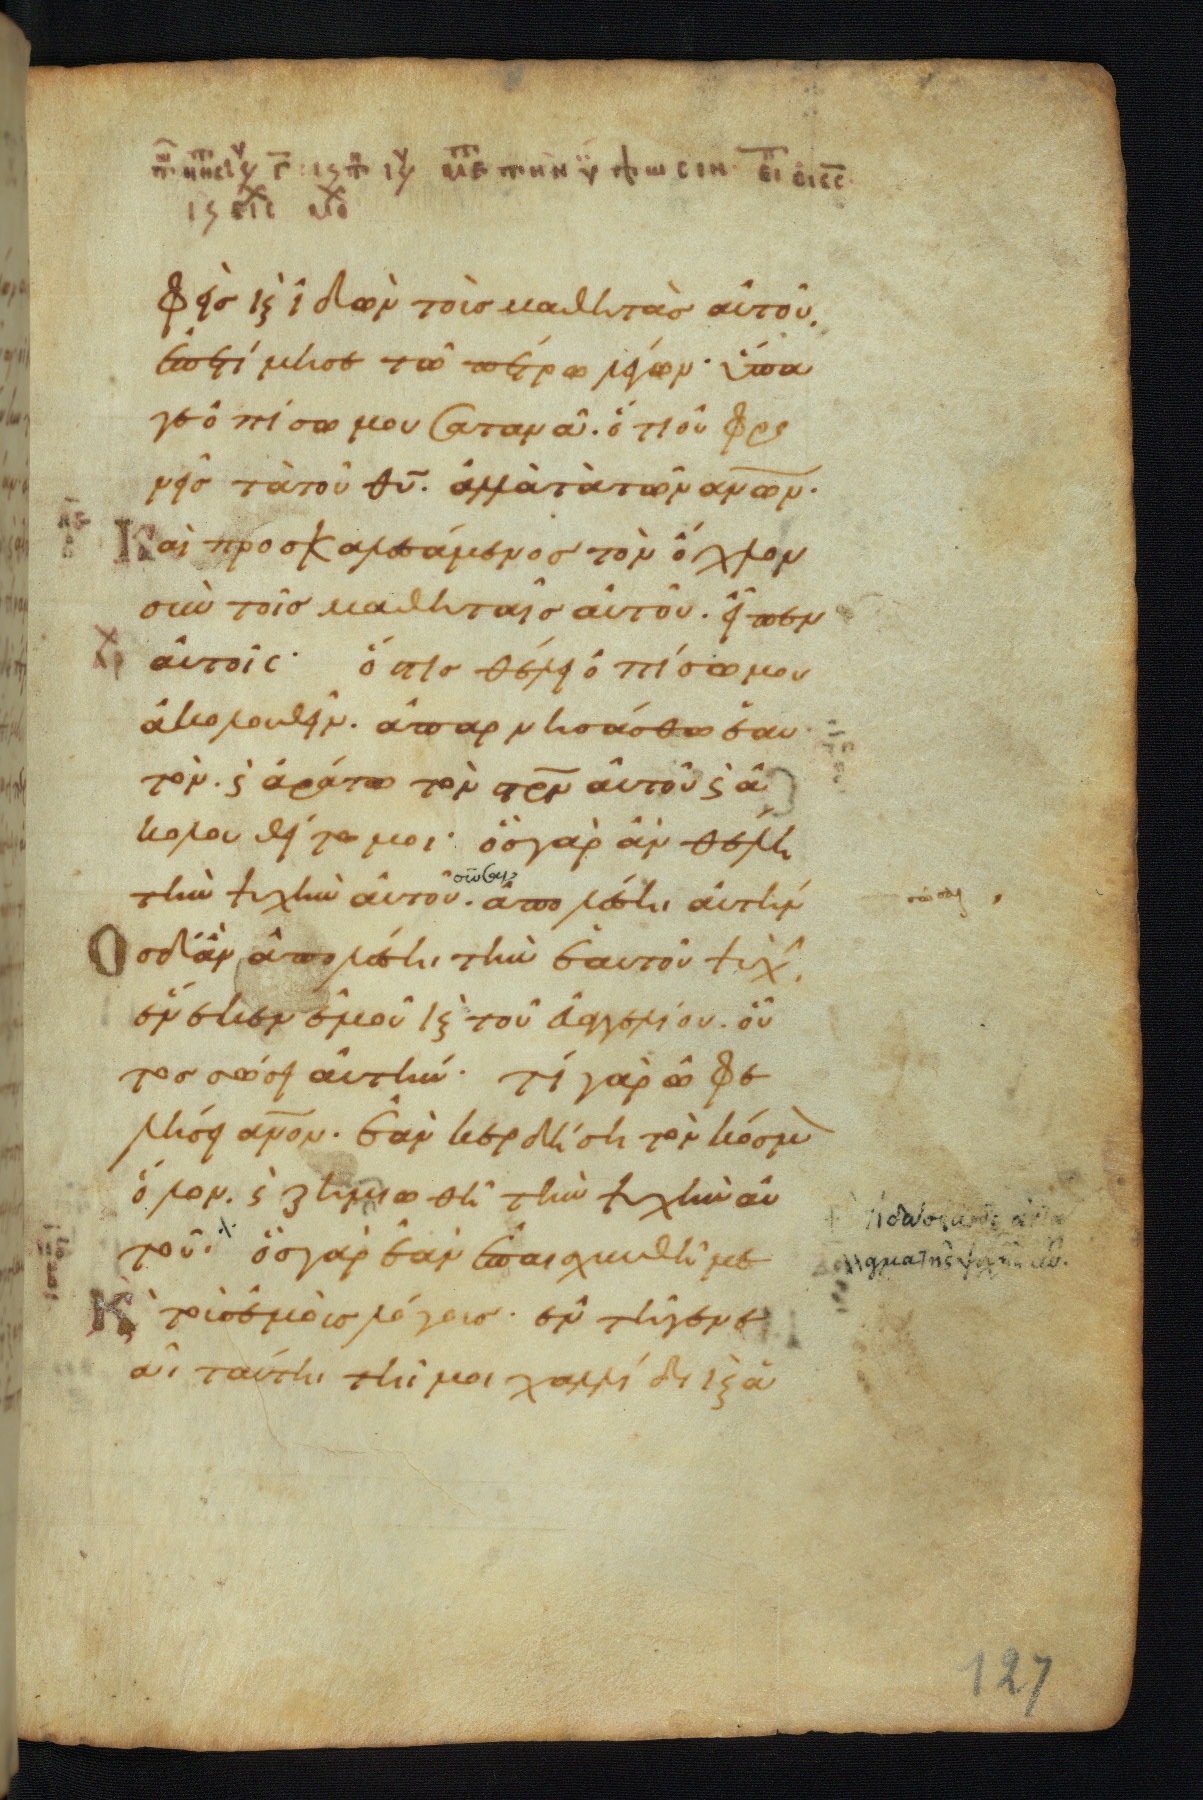 φεὶς καὶ ἰδὼν τοὺς μαθητὰς αὐτοῦ.
ἐπετίμησε τῶ πέτρω λέγων· ὕπα
γε ὀπίσω μου σατανᾶ. ὅτι οὐ φρο
νεῖς τὰ τοῦ θυ̅. ἀλλὰ τὰ τῶν ανω̅ν·
Καὶ προσκαλεσάμενος τὸν ὄχλον
σὺν τοῖς μαθηταῖς αὐτοῦ. εἶπεν
αὐτοῖς· ὅστις θέλει ὀπίσω μου
ἀκολουθεῖν. ἀπαρνησάσθω ἑαυ
τὸν. ϛ ἀράτω τὸν στρ̅ν αὐτοῦ ϛ ἀ
κολουθείτω μοι· ὃς γὰρ ἂν θέλη
τὴν ψυχὴν αὐτοῦ. σῶσαι ἀπολέση αὐτήν
Ὃς δ' ἂν ἀπολέση τὴν ἑαυτοῦ ψυχὴ
ἕνεκεν ἐμοῦ καὶ τοῦ εὐαγγελίου. οὗ
τος σώσει αὐτήν· τί γὰρ ὠφε
λήσει ανο̅ν. ἐὰν κερδήση τὸν κόσμον
ὅλον. ϛ ζημιωθῆ τὴν ψυχὴν αὐ
τοῦ· ὃς γὰρ ἐὰν ἐπαισχυνθῆ με
Κ̀ τοὺς ἐμοὺς λόγους· ἐν τῆ γενε
ᾶ ταύτη τῆ μοιχαλίδι καὶ ἁ
127